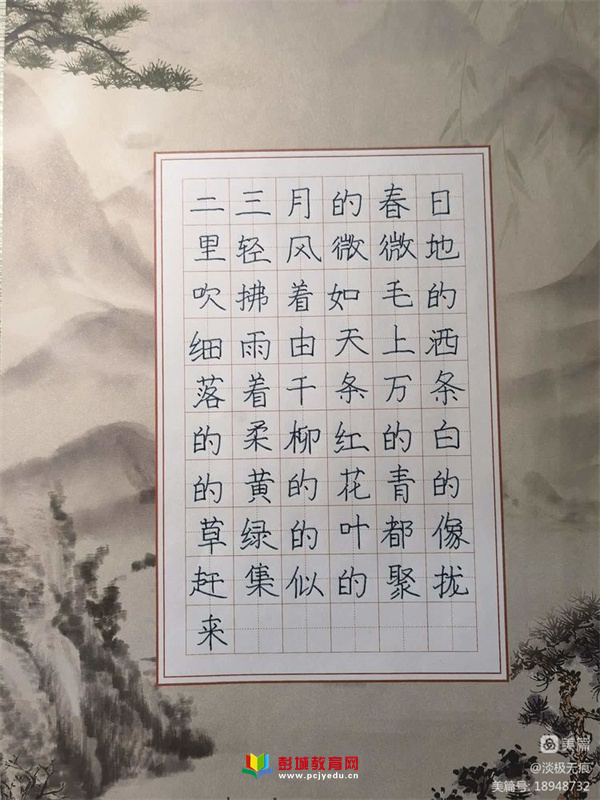 二三月的春日
里轻风微微地
吹拂着如毛的
细雨由天上洒
落着千条万条
的柔柳红的白
的黄的花青的
草绿的叶都像
赶集似的聚拢
来
彭城教育网
www.pcjyedu.cn
美篇
@淡极无痕
美篇号: 18948732